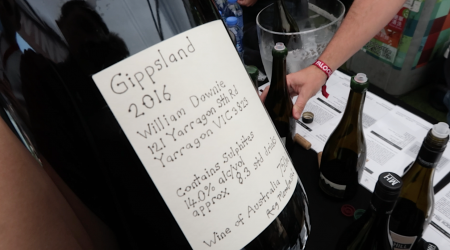 Gippsland
2016
William Downie
121 Yarragon Sth Rd
Yarragon VIC 3823
Contains Sulphites
14.0% alc/vol
approx 8.3 std drinks
Wine of Australia 750
HM